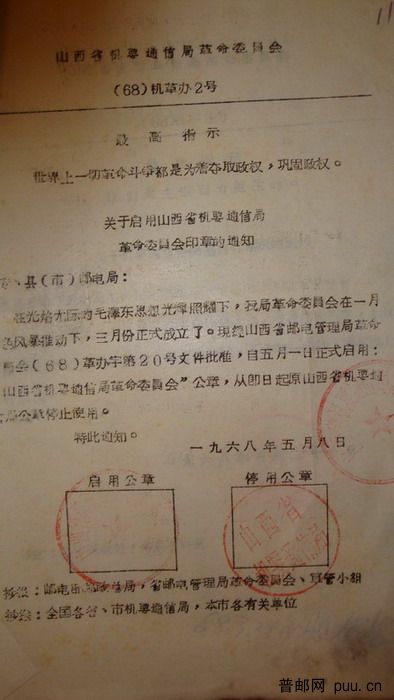 11
山西省机要通信局革命委員会
(68)机革办2号
最高指示
世界上一切革命斗争都是为着夺取政权，巩固政权。
关于启用山西省机要通信局
革命委員会印章的通知
县(市)邮电局：
在光焰无际的毛澤东思想光輝照耀下，我局革命委員会在一月
风暴推动下，三月份正式成立了。現經山西省邮电管理局革命
員会(68)革办字第20号文件批准，自五月一日正式启用：
山西省机要通信局革命委員会”公章，从即日起原山西省机要通
公章停止使用。
特此通知。
一九六八年五月八日
启用公章
停用公章
山西省
抄报：邮电部邮政总局，省邮电管理局革命委員会、軍管小組
抄送：全国各省、市机要通信局，本市各有关单位
普邮网 puu.cn